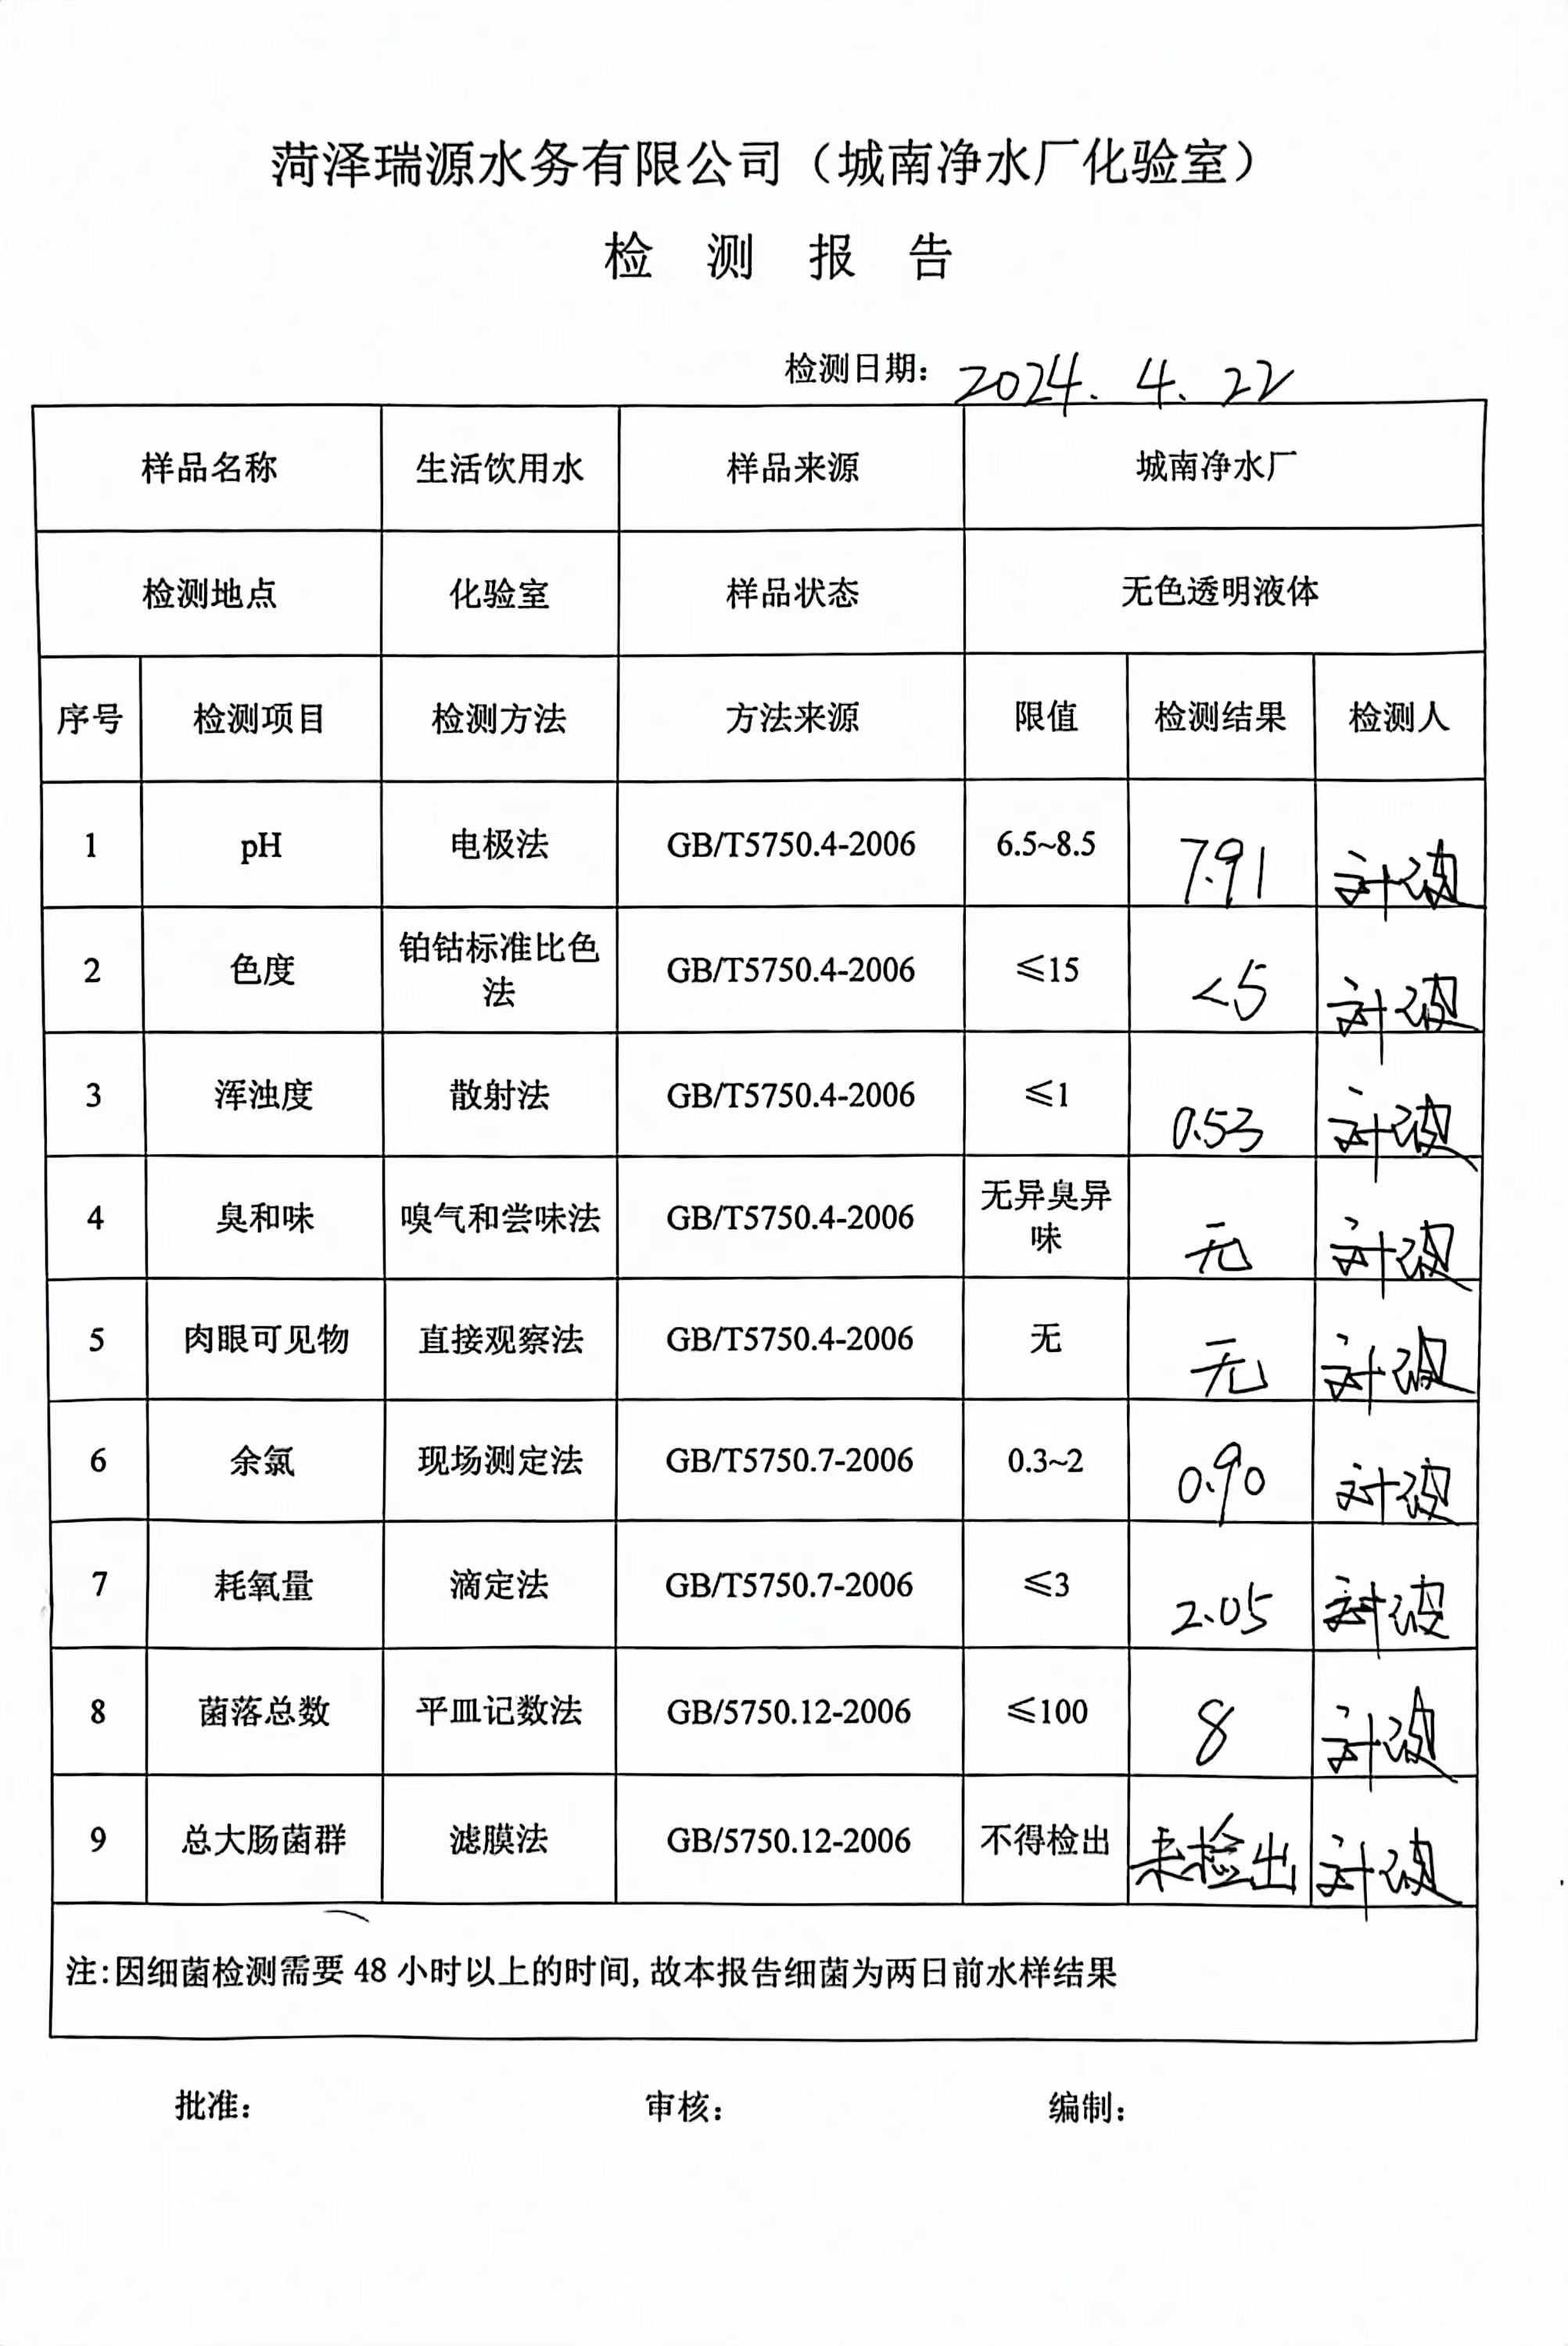 菏泽瑞源水务有限公司（城南净水厂化验室）
检 测 报 告
检测日期：2024. 4. 22
样品名称 生活饮用水 样品来源 城南净水厂
检测地点 化验室 样品状态 无色透明液体
序号 检测项目 检测方法 方法来源 限值 检测结果 检测人
1 pH 电极法 GB/T5750.4-2006 6.5~8.5 7.91
2 色度 铂钴标准比色法 GB/T5750.4-2006 ≤15 <5
3 浑浊度 散射法 GB/T5750.4-2006 ≤1 0.53
4 臭和味 嗅气和尝味法 GB/T5750.4-2006 无异臭异味 无
5 肉眼可见物 直接观察法 GB/T5750.4-2006 无 无
6 余氯 现场测定法 GB/T5750.7-2006 0.3~2 0.90
7 耗氧量 滴定法 GB/T5750.7-2006 ≤3 2.05
8 菌落总数 平皿记数法 GB/5750.12-2006 ≤100 8
9 总大肠菌群 滤膜法 GB/5750.12-2006 不得检出 未检出
注：因细菌检测需要 48 小时以上的时间，故本报告细菌为两日前水样结果
批准： 审核： 编制：